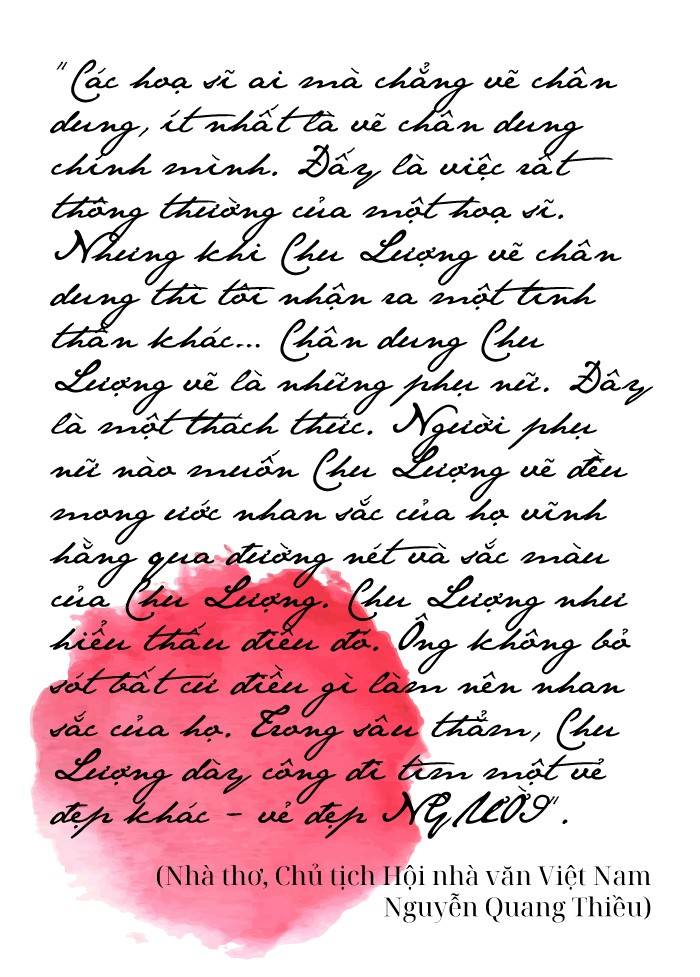 "Các hoạ sĩ ai mà chẳng vẽ chân
dung, ít nhất là vẽ chân dung
chính mình. Đấy là việc rất
thông thường của một hoạ sĩ.
Nhưng khi Chu Lượng vẽ chân
dung thì tôi nhận ra một tinh
thần khác... Chân dung Chu
Lượng vẽ là những phụ nữ. Đây
là một thách thức. Người phụ
nữ nào muốn Chu Lượng vẽ đều
mong ước nhan sắc của họ vĩnh
hằng qua đường nét và sắc màu
của Chu Lượng. Chu Lượng như
hiểu thấu điều đó. Ông không bỏ
sót bất cứ điều gì làm nên nhan
sắc của họ. Trong sâu thẳm, Chu
Lượng dày công đi tìm một vẻ
đẹp khác - vẻ đẹp NGƯỜI".
(Nhà thơ, Chủ tịch Hội nhà văn Việt Nam
Nguyễn Quang Thiều)